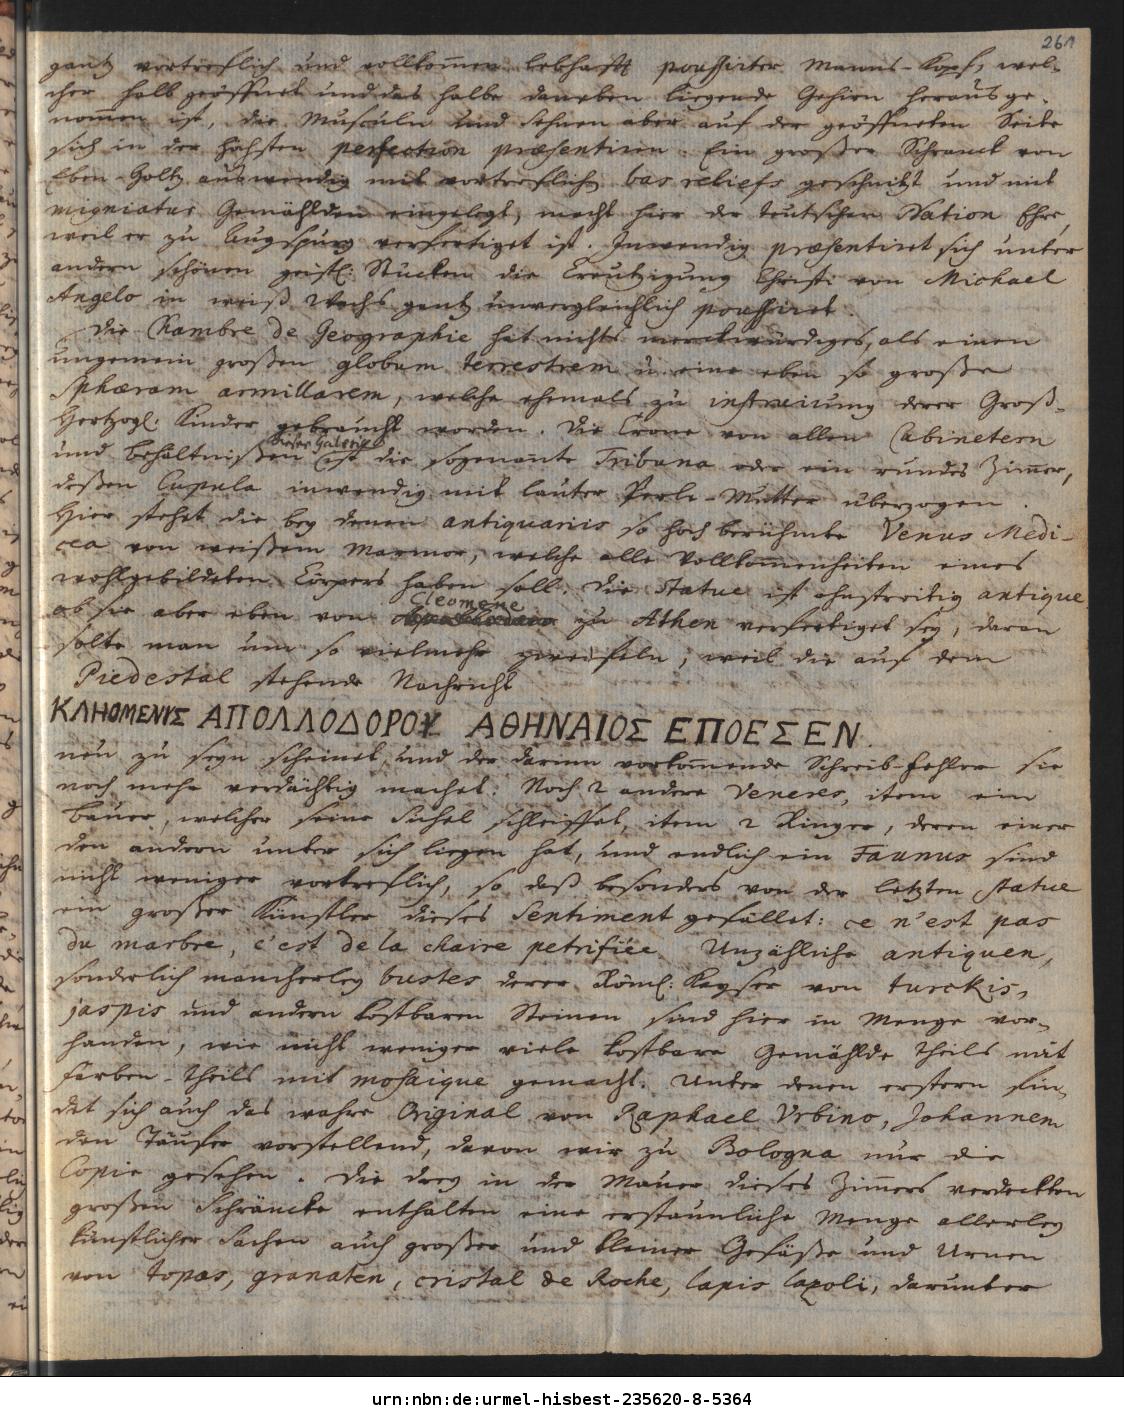 261
gantz vortreflich und vollkom̅en lebhafft poussirter Manns-Kopf, wel-
cher halb geöffnet und das halbe daneben liegende Gehirn heraus ge-
nom̅en ist, die Musculn und Sehnen aber auf der geöffneten Seite
sich in der höchsten perfection præsentiren. Ein großer Schranck von
Eben-Holtz auswendig mit vortreflichen bas reliefs geschnitzt und mit
migniatur Gemählden eingelegt, macht hier der teutschen Nation Ehre,
weil er zu Augspurg verfertiget ist. Inwendig præsentiret sich unter
andern schönen geistl: Stücken die Creutzigung Christi von Michael
Angelo in weiß Wachs gantz unvergleichlich poussiret.
Die Kambre de Geographie hat nichts merckwürdiges, als einen
ungemein großen globum terrestrem u. eine eben so große
Sphæram armillarem, welche ehemals zu instruirung derer Groß-
Hertzogl: Kinder gebraucht worden. Die Crone von allen Cabinetern
dieser Galerie
und Behältnißen ist die sogenante Tribuna oder ein rundes Zim̅er,
deßen Cupula inwendig mit lauter Perle-Mutter überzogen.
Hier stehet die bey denen antiquariis so hoch berühmte Venus Medi-
cea von weißem Marmor, welche alle Vollkom̅enheiten eines
wohlgebildeten Cörpers haben soll. Die Statue ist ohnstreitig antique
Cleomene
ob sie aber eben von zu Athen verfertiget sey, daran
solte man um so vielmehr zweifeln, weil die auf dem
Piedestal stehende Nachricht
ΚΛΗΟΜΕΝΥΣ ΑΠΟΛΛΟΔΟΡΟΥ ΑΘΗΝΑΙΟΣ ΕΠΟΕΣΕΝ.
neu zu seyn scheinet, und der darinn vorkom̅ende Schreib-Fehler sie
noch mehr verdächtig machet. Noch 2 andere Veneres, item ein
Bauer, welcher seine Sichel schleiffet, item 2 Ringer, deren einer
den andern unter sich liegen hat, und endlich ein Faunus sind
nicht weniger vortreflich, so daß besonders von der letzten statue
ein großer Künstler dieses Sentiment gefället: ce n'est pas
du marbre, c'est de la chaire petrifiée. Unzähliche antiquen,
sonderlich mancherley bustes derer Röml: Kayser von turckis,
jaspis und andern kostbaren Steinen sind hier in Menge vor-
handen, wie nicht weniger viele kostbare Gemählde theils mit
Farben- theils mit mosaique gemacht. Unter denen erstern fin-
det sich auch das wahre Original von Raphael Urbino, Johannem
den Täufer vorstellend, davon wir zu Bologna nur die
Copie gesehen. Die drey in der Mauer dieses Zim̅ers verdeckten
großen Schräncke enthalten eine erstaunliche Menge allerley
künstlicher Sachen auch großer und kleiner Gefäße und Urnen
von topas, granaten, cristal de Roche, lapis lazoli, darunter
urn:nbn:de:urmel-hisbest-235620-8-5364